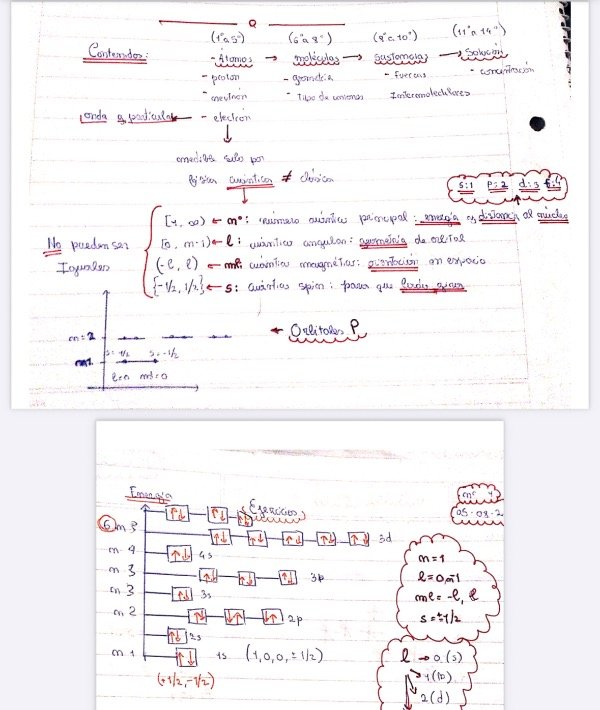 Q
(1º a 5º) (6º a 8º) (9º a 10º) (11º a 14º)
Contenidos: - Átomos → moléculas → Sustancias → Solución
- proton - geometría - fuerzas - concentración
- neutrón - Tipo de uniones Intermoleculares
onda y partícula ← - electrón
medible solo por
física cuántica ≠ clásica
S:1 P:2 d:3 f:4
[1, ∞) ← nº: número cuántico principal: energía y distancia al núcleo
No pueden ser [0, n-1) ← l: cuántico angular: geometría de orbital
Iguales (-l, l) ← ml: cuántico magnético: orientación en espacio
{-1/2, 1/2} ← s: cuántico spin: para que lado gira
n=2 ← Orbitales P
s=1/2 s=-1/2
n=1
l=0 ml=0
Energía
Ejercicios
6 n 3 3d
n 4 4s
n 3 3p
n 3 3s
n 2 2p
2s
n 1 1s (1,0,0, ±1/2)
(+1/2, -1/2)
n=1
l=0, n-1
ml= -l, l
s=±1/2
l → 0 (s)
1 (p)
2 (d)